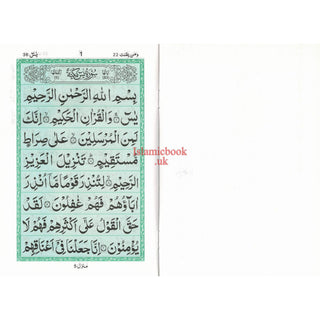 يٰسٓ 36
٦
وَمَنْ يَّقْنُتْ 22
سُوْرَةُ يٰسٓ مَكِّيَّةٌ
بِسْمِ اللهِ الرَّحْمٰنِ الرَّحِيْمِ
يٰسٓ ۝ وَالْقُرْاٰنِ الْحَكِيْمِ ۝ اِنَّكَ
لَمِنَ الْمُرْسَلِيْنَ ۝ عَلٰى صِرَاطٍ
مُّسْتَقِيْمٍ ۝ تَنْزِيْلَ الْعَزِيْزِ
الرَّحِيْمِ ۝ لِتُنْذِرَ قَوْمًا مَّآ اُنْذِرَ
اٰبَآؤُهُمْ فَهُمْ غٰفِلُوْنَ ۝ لَقَدْ
حَقَّ الْقَوْلُ عَلٰٓى اَكْثَرِهِمْ فَهُمْ لَا
يُؤْمِنُوْنَ ۝ اِنَّا جَعَلْنَا فِيْٓ اَعْنَاقِهِمْ
منزل 5
Islamicbook
.uk